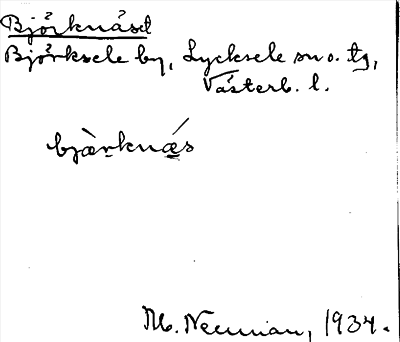 Björknäset
Björksele by, Lycksele sn o. tg,
Västerb. l.
bjæ̀rknǽs
M. Neuman, 1934.